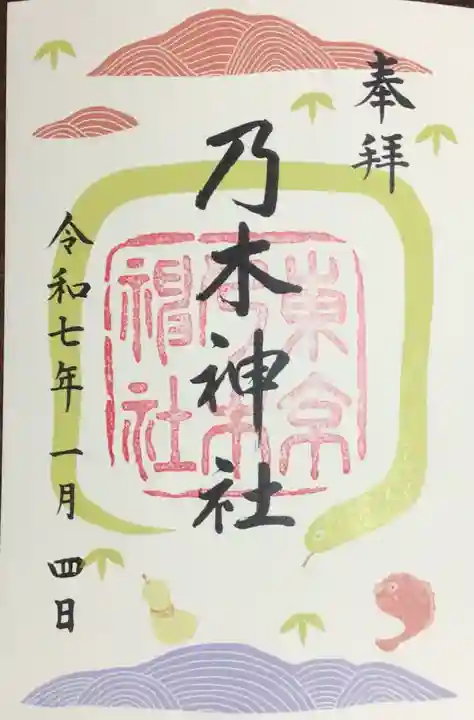 奉拝
乃木神社
東京
乃木
神社
令和七年一月四日